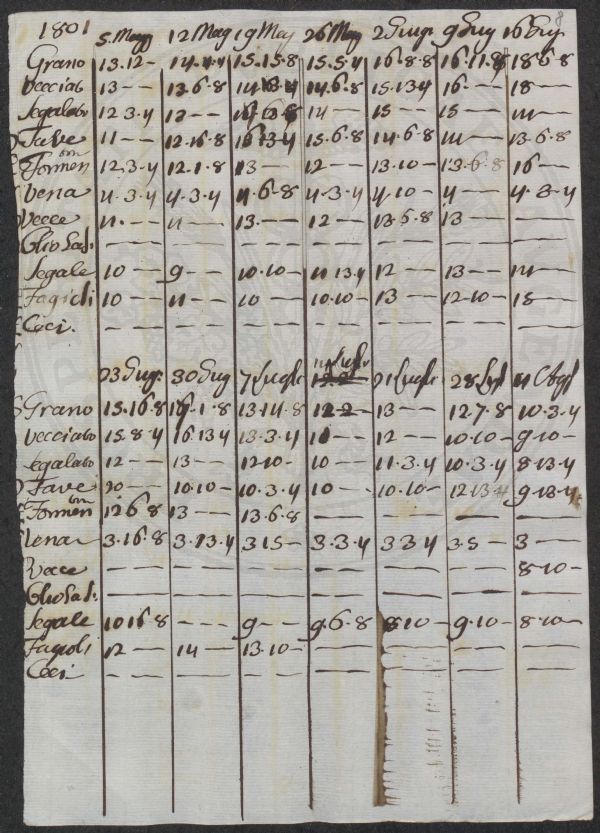 1801 5. Magg 12 Mag 19 Mag 26 Mag 2 Giug. 9 Giug 16 Giug
Grano 13.12- 14.4.4 15.15.8 15.5.4 16.8.8 16.11.8 18.6.8
Vecciato 13-- 13.6.8 14.13.4 14.6.8 15.13.4 16.-- 18--
Segalato 12.3.4 12-- 14-- 15-- 15-- 14--
Fave 11-- 12.16.8 16.13.4 15.6.8 14.6.8 14-- 13.6.8
Formen on 12.3.4 12.1.8 13-- 12-- 13.10- 13.6.8 16--
Vena 4.3.4 4.3.4 4.6.8 4.3.4 4.10- 4-- 4.3.4
Vecce 11.-- 11-- 13.-- 12-- 13.6.8 13--
Olio Sas.
Segale 10-- 9-- 10.10- 11.13.4 12-- 13-- 14--
Fagioli 10-- 11-- 10-- 10.10- 13-- 12-10- 15--
Ceci.
23 Giug. 30 Giug 7 Lugl 14 Luglio 21 Lugl 28 Lugl 4 Agst
Grano 15.16.8 16.1.8 13.14.8 12.2- 13-- 12.7.8 10.3.4
Vecciato 15.8.4 16.13.4 13.3.4 10-- 12-- 10.10- 9.10-
Segalato 12-- 13-- 12.10- 10-- 11.3.4 10.3.4 8.13.4
Fave 10-- 10.10- 10.3.4 10-- 10.10- 12.13.4 9.13.4
Formen on 12.6.8 13-- 13.6.8
Vena 3.16.8 3.13.4 3.15- 3.3.4 3.3.4 3.5- 3--
Vecce 8.10-
Olio Sas.
Segale 10.16.8 --- 9-- 9.6.8 8.10- 9.10- 8.10-
Fagioli 12-- 14-- 13.10-
Ceci